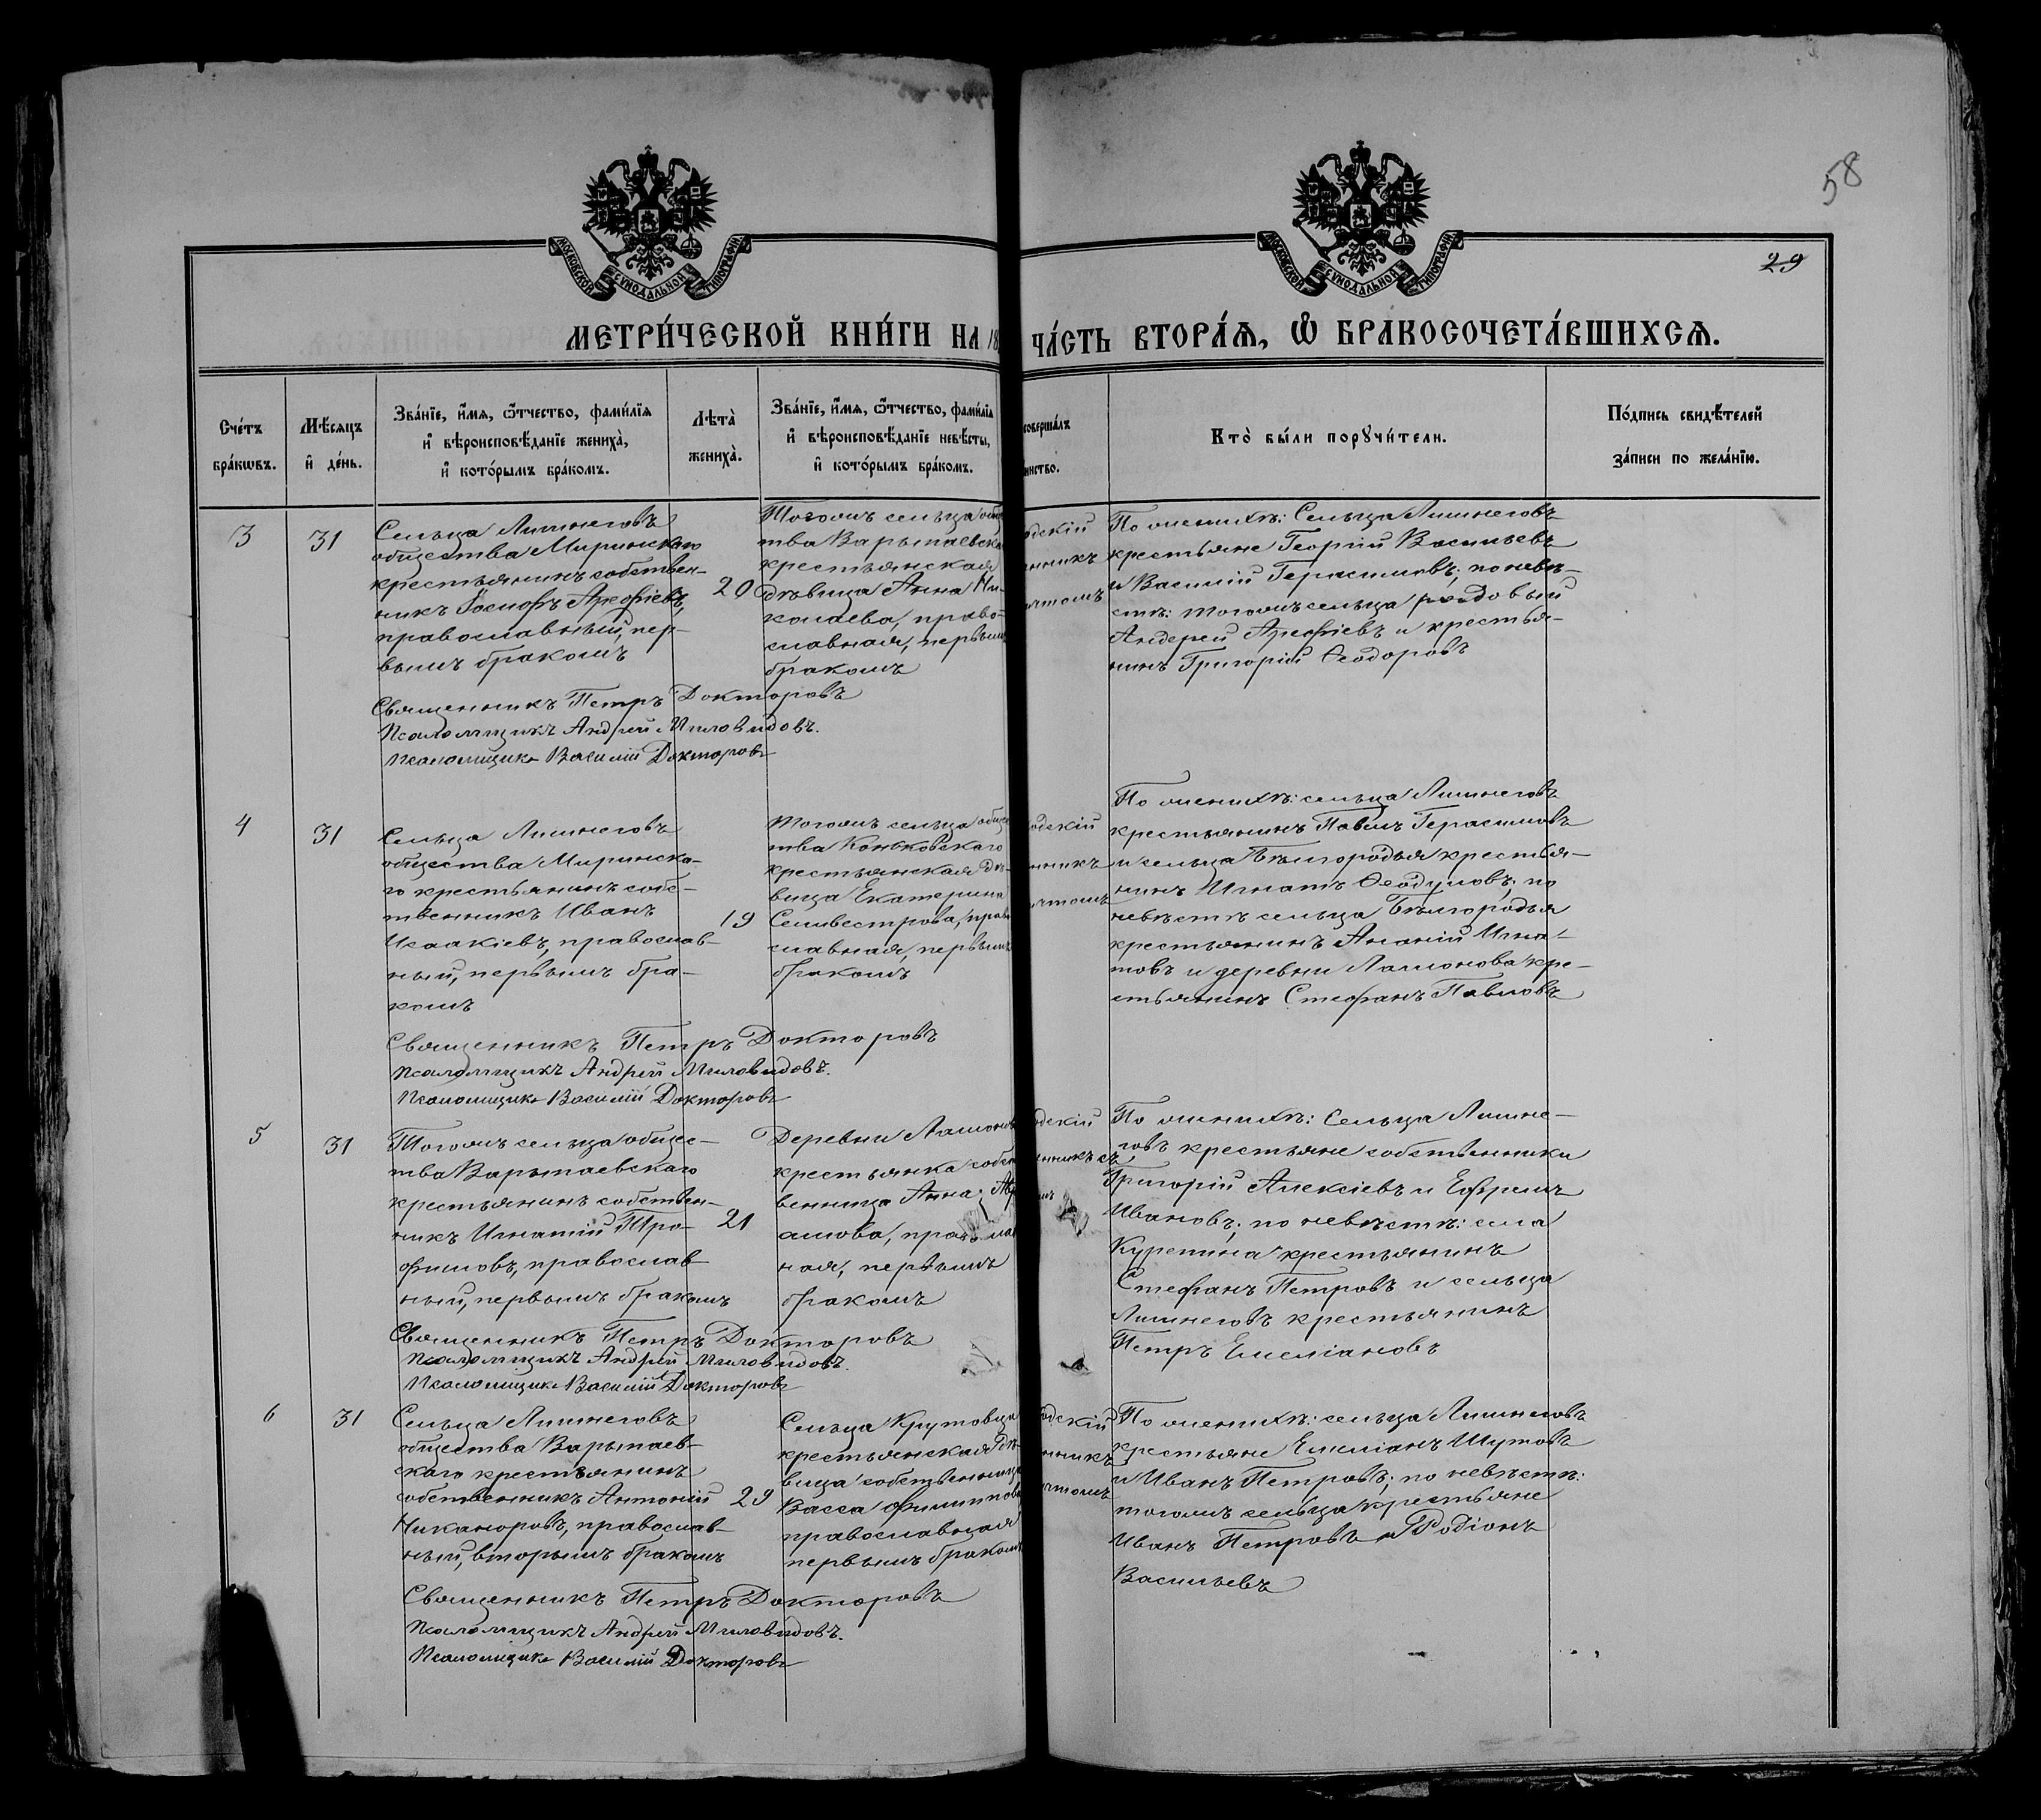 58
29
МЕТРИ́ЧЕСКОЙ КНИ́ГИ НА 18
ЧА́СТЬ ВТОРА́Ѧ, Ѡ҆ БРАКОСОЧЕТА́ВШИХСѦ.
МОСКОВСКОЙ СѴНОДАЛЬНОЙ ТИПОГРАФІИ
МОСКОВСКОЙ СѴНОДАЛЬНОЙ ТИПОГРАФІИ
Сче́тъ
бра́кѡвъ.
Мѣ́сяцъ
и҆ де́нь.
Зва́нїе, и҆́мя, ѻ҆́тчество, фами́лїя
и҆ вѣроисповѣ́данїе жениха̀,
и҆ кото́рымъ бра́комъ.
Лѣ́та
жениха̀.
Зва́нїе, и҆́мя, ѻ҆́тчество, фами́лїя
и҆ вѣроисповѣ́данїе невѣ́сты,
и҆ кото́рымъ бра́комъ.
соверша́лъ
инство.
Кто̀ бы́ли порꙋчи́тели.
По́дпись свидѣ́телей
за́писи по жела́нїю.
3
31
Сельца Лишнеговъ
общества Миринскаго
крестьянинъ собствен-
никъ Іосифъ Арефіевъ,
православный, пер-
вымъ бракомъ
20
Тогожъ сельца общ
тва Варыпаевска
крестьянская
дѣвица Анна Ни-
колаева, право-
славная, первым
бракомъ
одскій
нникъ
ятомъ
По женихѣ: Сельца Лишнеговъ
крестьяне Георгій Васильевъ
и Василій Герасимовъ; по невѣ-
стѣ: тогожъ сельца рядовый
Андрей Арефіевъ и крестья-
нинъ Григорій Ѳеодоровъ
Священникъ Петръ Докторовъ
Псаломщикъ Андрей Миловидовъ.
Псаломщикъ Василій Докторовъ
4
31
Сельца Лишнеговъ
общества Миринска-
го крестьянинъ собс-
твенникъ Иванъ
Исаакіевъ, православ-
ный, первымъ бра-
комъ
19
Тогожъ сельца общес
тва Коньковскаго
крестьянская дѣ-
вица Екатерина
Селивестрова, прав
славная, первымъ
бракомъ
одскій
нникъ
ятомъ
По женихѣ: сельца Лишнеговъ
крестьянинъ Павелъ Герасимовъ
и сельца Бѣлгородья крестья-
нинъ Игнатъ Ѳеодуловъ; по
невѣстѣ сельца Бѣлгородья
крестьянинъ Ананій Игна-
товъ и деревни Ламонова кре-
стьянинъ Стефанъ Павловъ
Священникъ Петръ Докторовъ
Псаломщикъ Андрей Миловидовъ.
Псаломщикъ Василій Докторовъ
5
31
Тогожъ сельца общес-
тва Варыпаевскаго
крестьянинъ собствен-
никъ Игнатій Тро-
фимовъ, православ-
ный, первымъ бракомъ
21
Деревни Ламонов
крестьянка собст
венница Анна Ав
амова, правосла
ная, первымъ
бракомъ
одскій
нникъ съ
По женихѣ: Сельца Лишне-
говъ крестьяне собственники
Григорій Алексіевъ и Ефремъ
Ивановъ; по невѣстѣ: села
Курепина крестьянинъ
Стефанъ Петровъ и сельца
Лишнеговъ крестьянинъ
Петръ Емеліановъ
Священникъ Петръ Докторовъ
Псаломщикъ Андрей Миловидовъ.
Псаломщикъ Василій Докторовъ
6
31
Сельца Лишнеговъ
общества Варыпаев-
скаго крестьянинъ
собственникъ Антоній
Никаноровъ, православ-
ный, вторымъ бракомъ
29
Сельца Крутовца
крестьянская дѣ-
вица собственниц
Васса Филиппов
православная
первымъ браком
одскій
нникъ
ятомъ
По женихѣ: сельца Лишнеговъ
крестьяне Емеліанъ Шутовъ
и Иванъ Петровъ; по невѣстѣ:
тогожъ сельца крестьяне
Иванъ Петровъ и Родіонъ
Васильевъ
Священникъ Петръ Докторовъ
Псаломщикъ Андрей Миловидовъ.
Псаломщикъ Василій Докторовъ